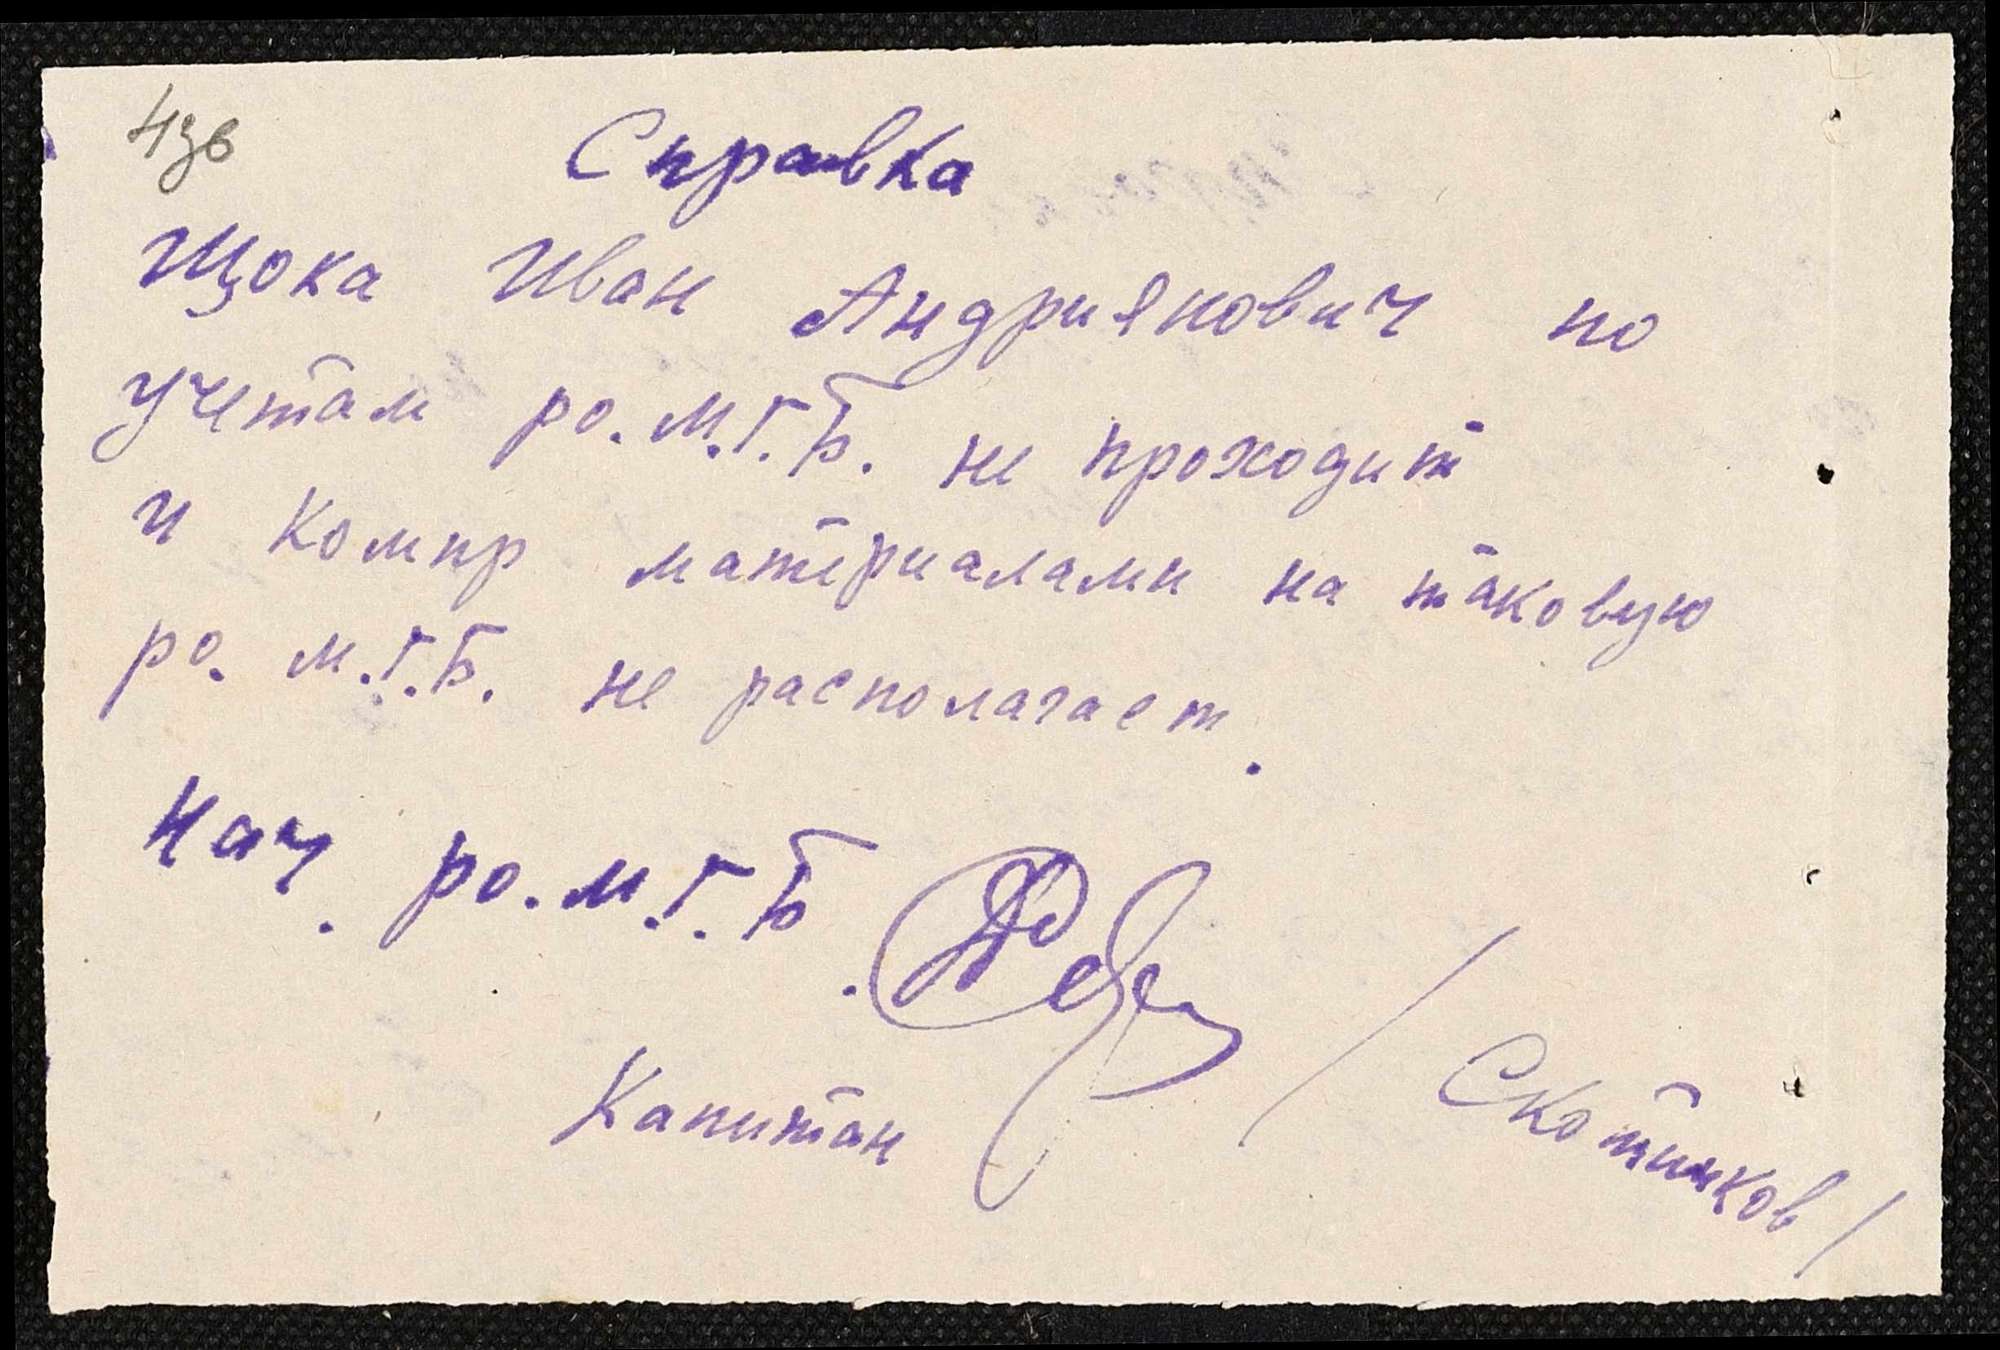 Справка
Щока Иван Андриянович по
учетам ро. М.Г.Б. не проходит
и компр материалами на таковую
ро. М.Г.Б. не располагает.
Нач. ро. М.Г.Б.
Капитан / Скотников /